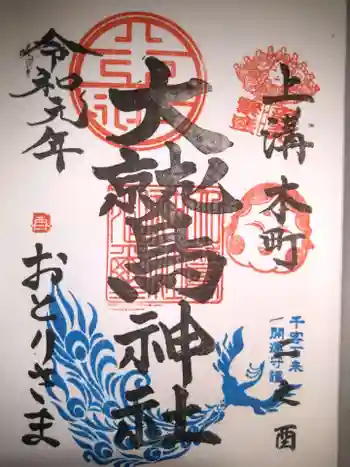 上溝 本町
二之酉
千客万来
一開運守護
大鷲神社
令和元年
酉
おとりさま